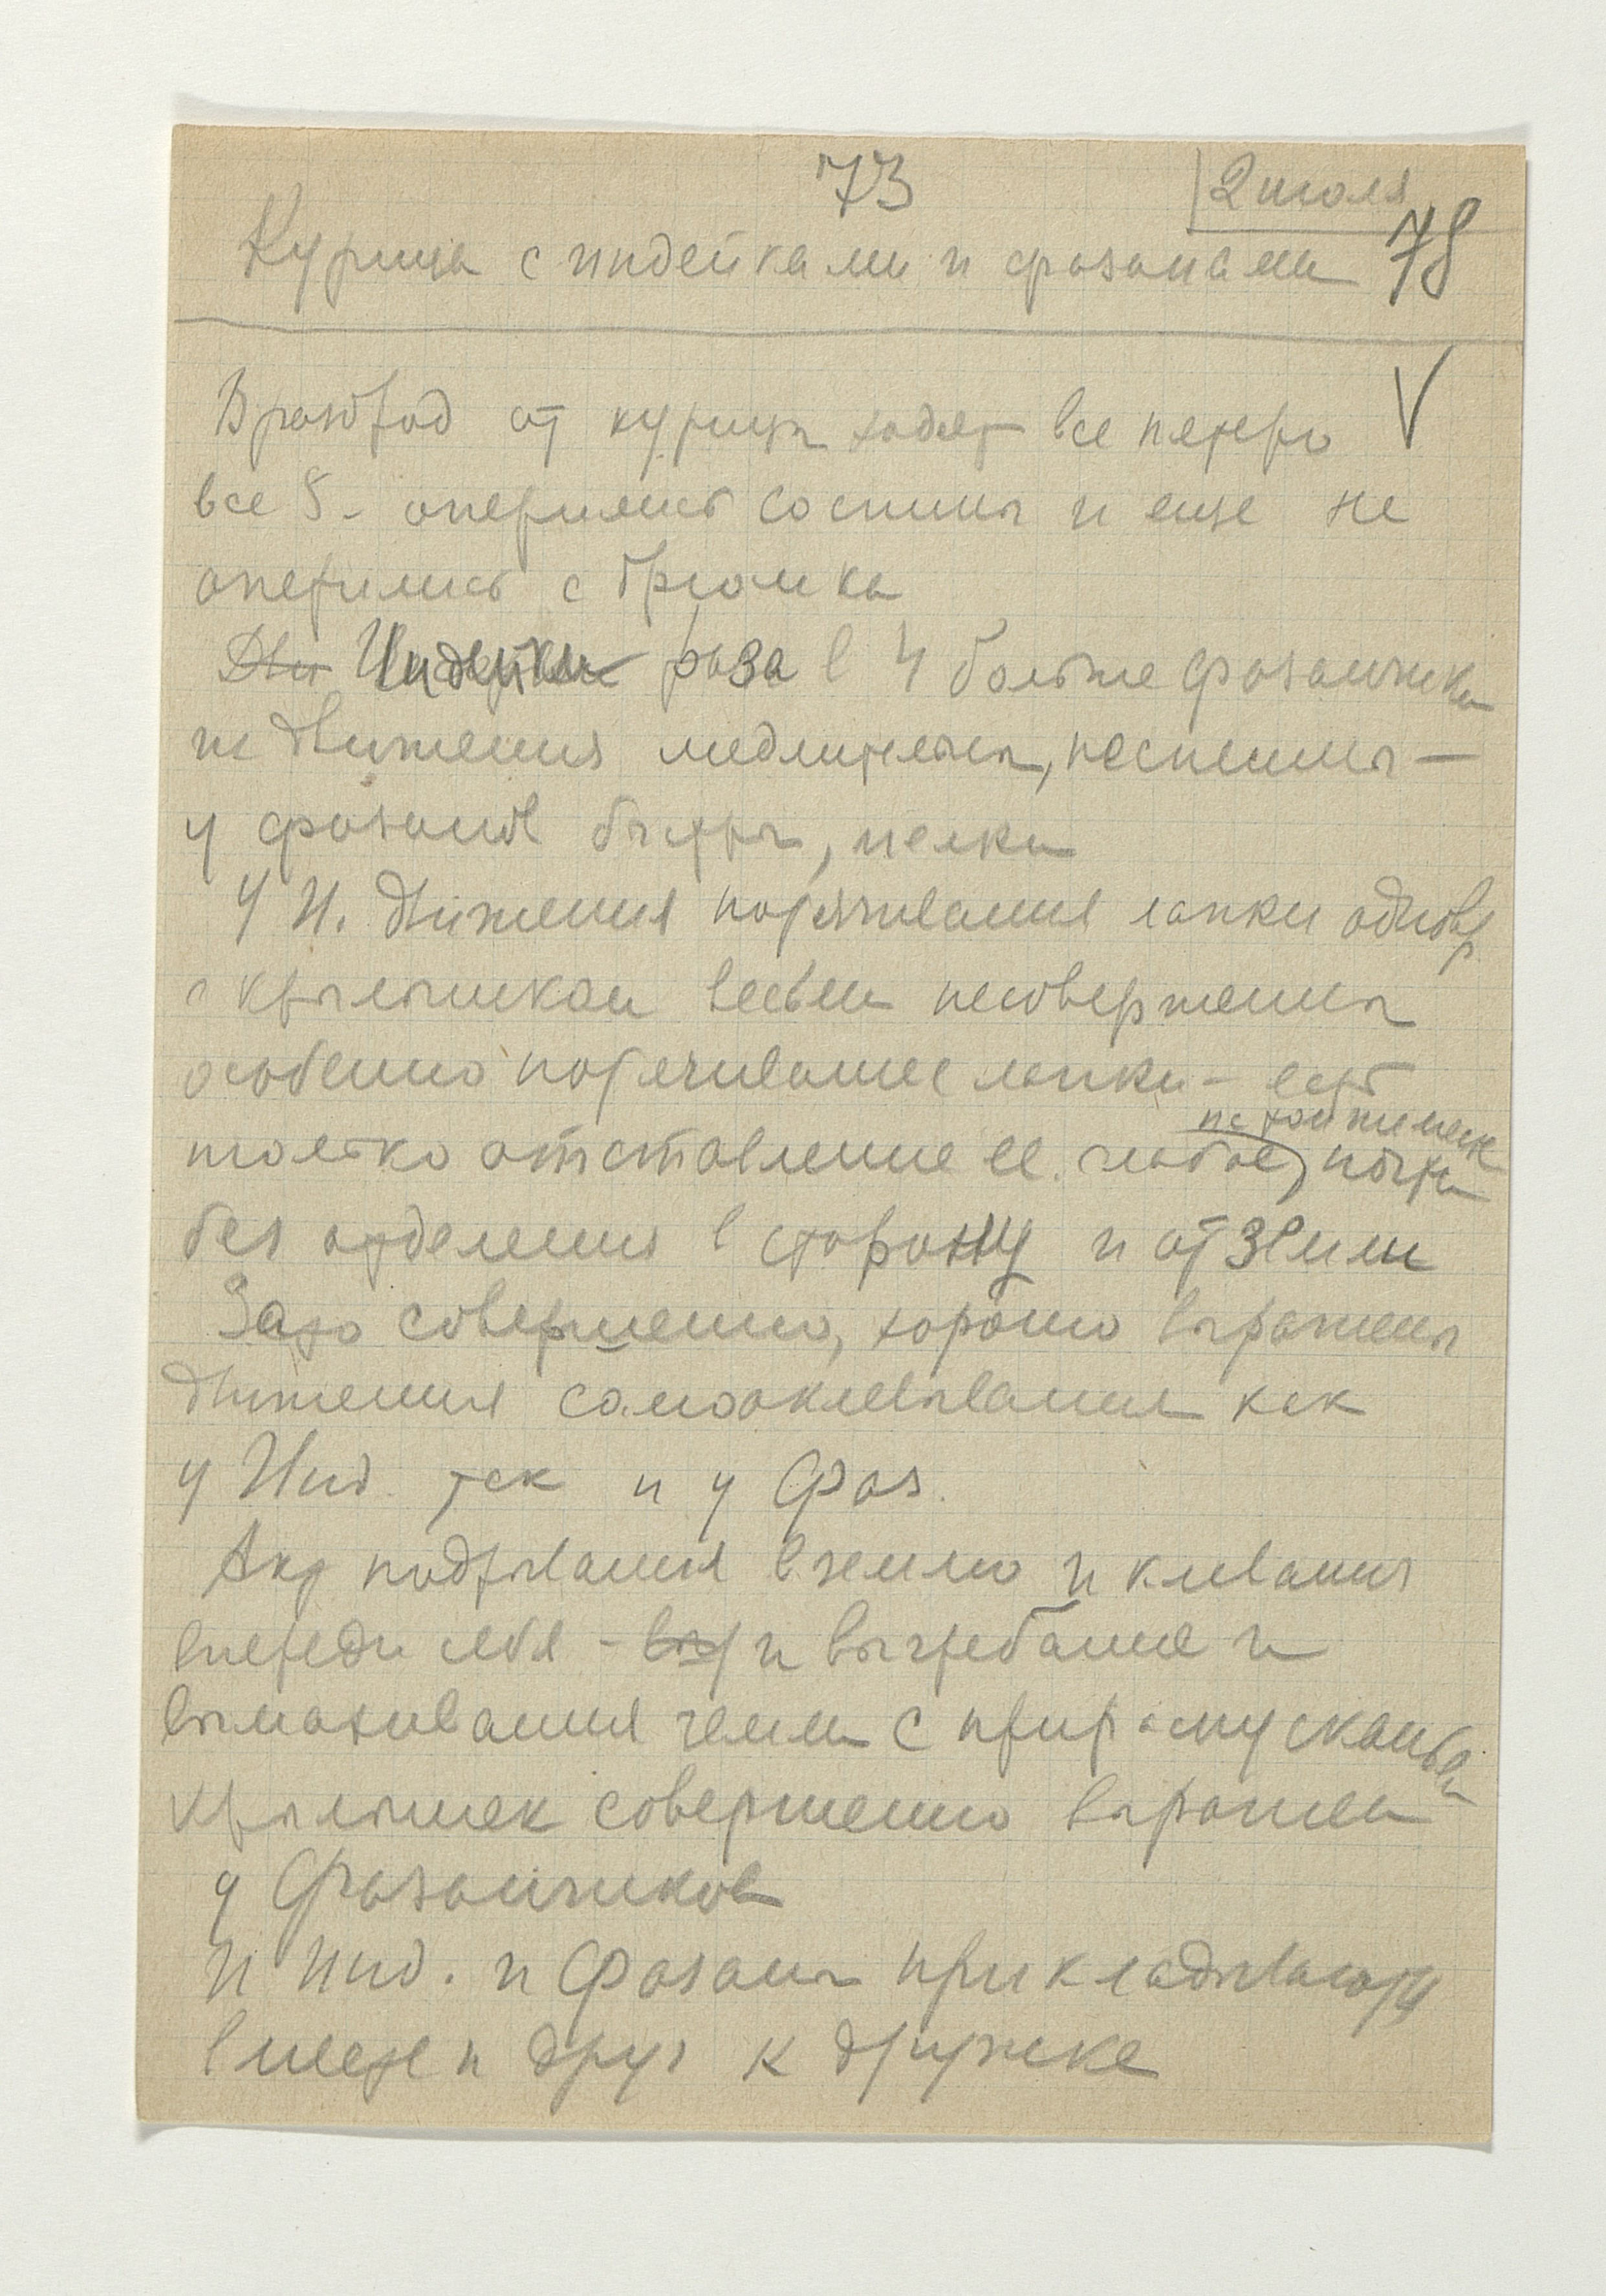 73
2 июля
Курица с индейками и фазанами 78
V
Вразброд от курицы ходят все пятеро
все 5 - оперились со спины и еще не
оперились с брюшка
Дви Индейки раза в 4 больше фазанчика
их движения медлительны, неспешны —
у фазанов быстры, мелки
У И. движения потягивания лапки однов
с крылышком весьма несовершенны
особенно потягивание лапки - есть
только отставление ее. слабое, почти
без отделения в сторону и от земли
Зато совершенно, хорошо выражены
движения самооклевывания как
у Инд. так и у Фаз.
Акт подрывания в землю и клевания
впереди себя - и выгребание и
вымахивания земли с
крылышек совершенно выражен
у Фазанчиков
И Инд. и Фазаны прикладываются
вместе друг к дружке